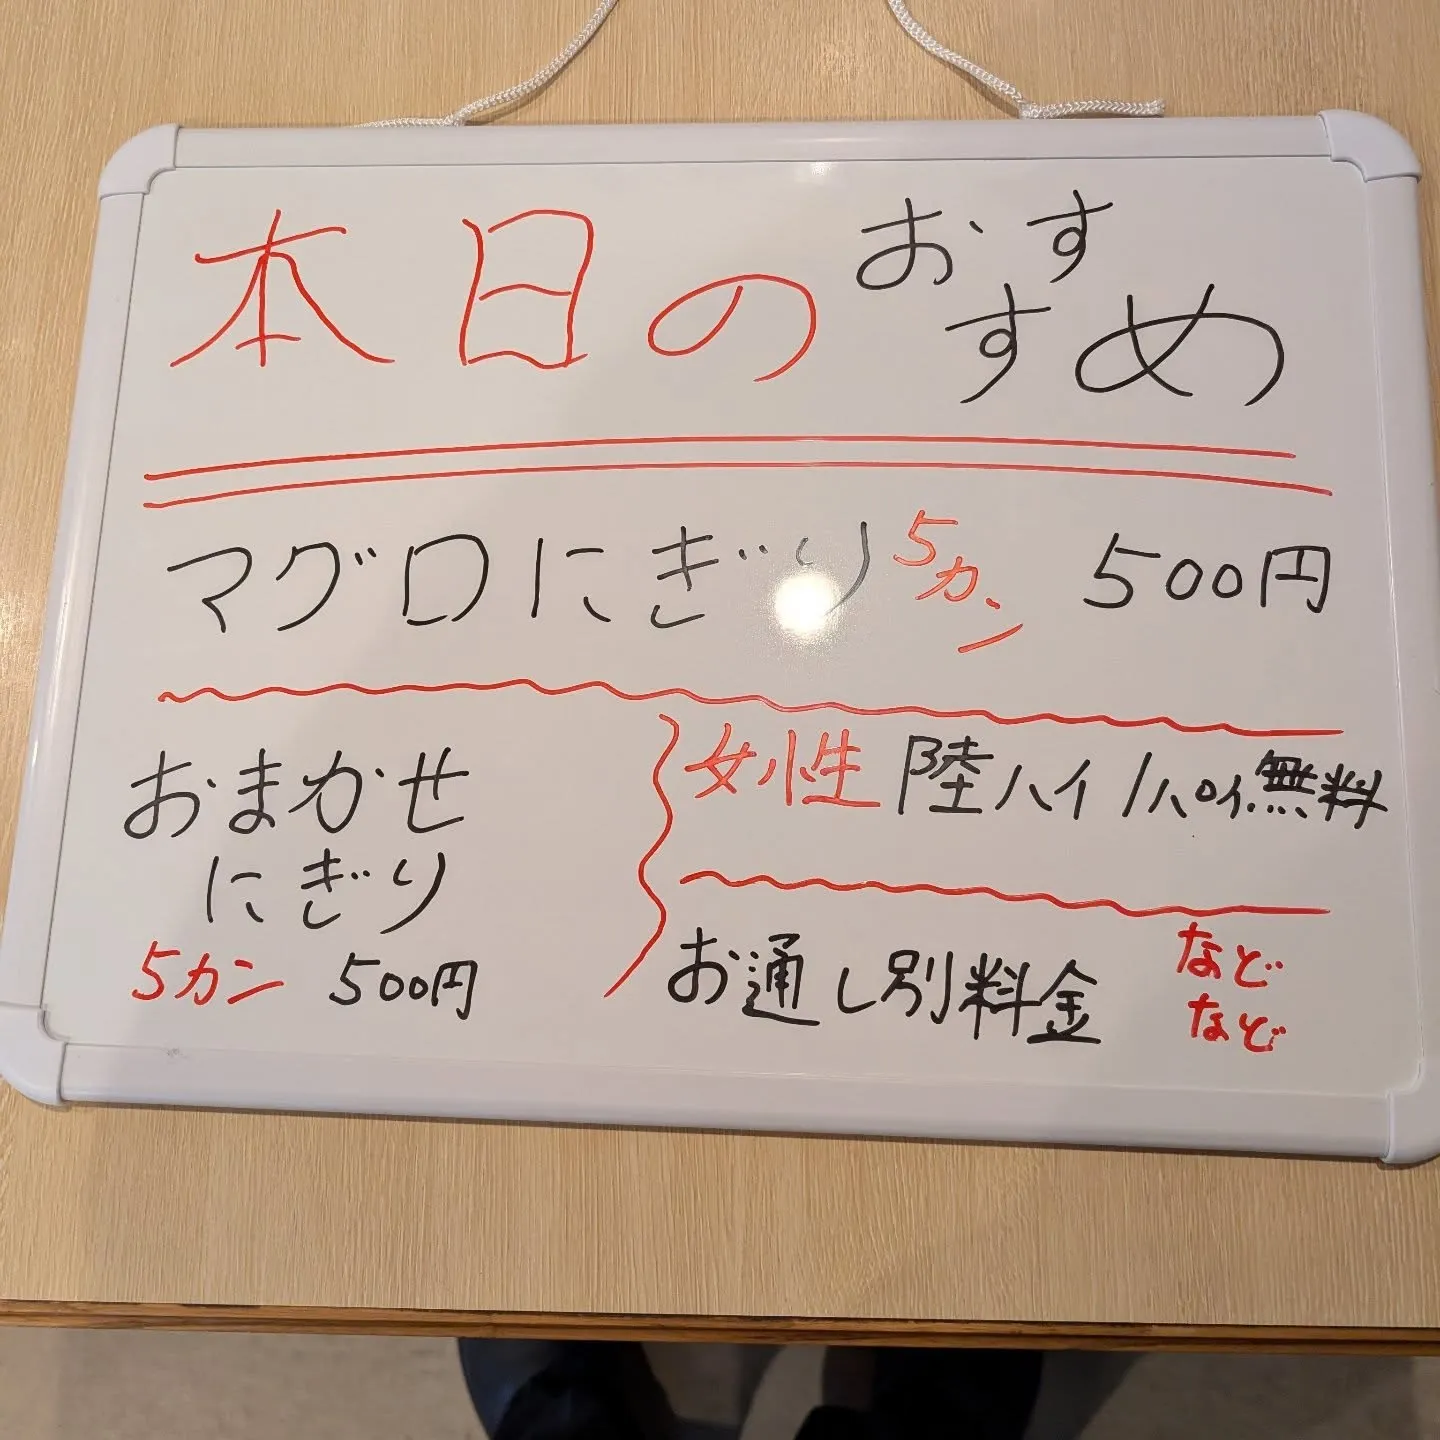 本日のおすすめ
マグロにぎり 5カン 500円
おまかせ
にぎり
5カン 500円
女性 陸ハイ / ハイ無料
お通し別料金
など
など